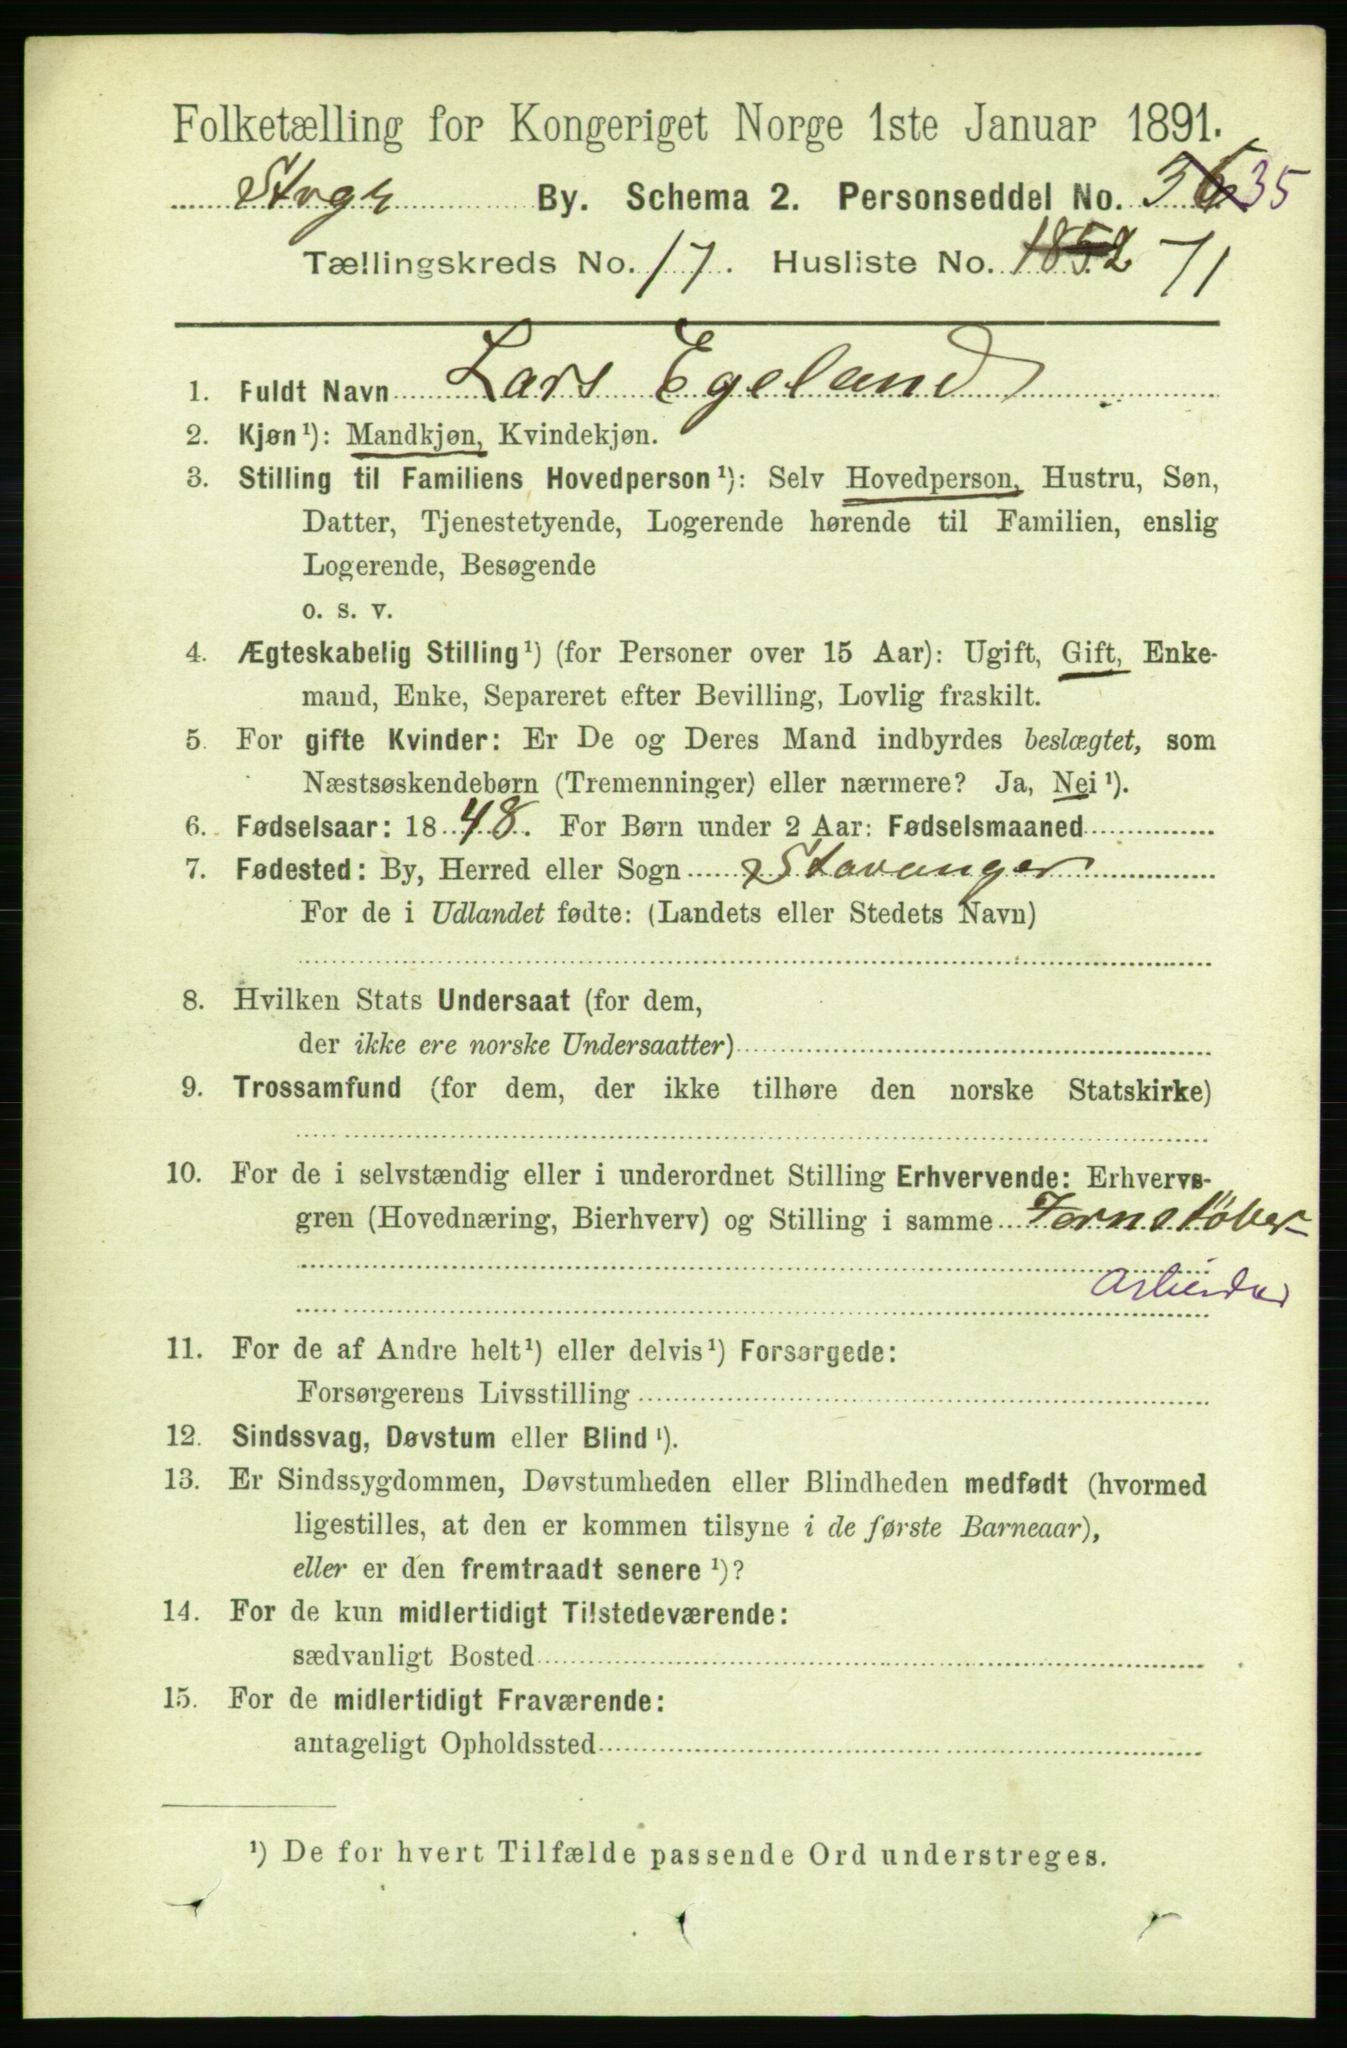 Folketælling for Kongeriget Norge 1ste Januar 1891.
Stvgr By. Schema 2. Personseddel No. 36 35
Tællingskreds No. 17. Husliste No. 1852 71
1. Fuldt Navn Lars Egeland
2. Kjøn¹): Mandkjøn, Kvindekjøn.
3. Stilling til Familiens Hovedperson¹): Selv Hovedperson, Hustru, Søn,
Datter, Tjenestetyende, Logerende hørende til Familien, enslig
Logerende, Besøgende
o. s. v.
4. Ægteskabelig Stilling¹) (for Personer over 15 Aar): Ugift, Gift, Enke-
mand, Enke, Separeret efter Bevilling, Lovlig fraskilt.
5. For gifte Kvinder: Er De og Deres Mand indbyrdes beslægtet, som
Næstsøskendebørn (Tremenninger) eller nærmere? Ja, Nei¹).
6. Fødselsaar: 1848. For Børn under 2 Aar: Fødselsmaaned
7. Fødested: By, Herred eller Sogn Stavanger
For de i Udlandet fødte: (Landets eller Stedets Navn)
8. Hvilken Stats Undersaat (for dem,
der ikke ere norske Undersaatter)
9. Trossamfund (for dem, der ikke tilhøre den norske Statskirke)
10. For de i selvstændig eller i underordnet Stilling Erhvervende: Erhvervs-
gren (Hovednæring, Bierhverv) og Stilling i samme Jernstöber
Arbeider
11. For de af Andre helt¹) eller delvis¹) Forsørgede:
Forsørgerens Livsstilling
12. Sindssvag, Døvstum eller Blind¹).
13. Er Sindssygdommen, Døvstumheden eller Blindheden medfødt (hvormed
ligestilles, at den er kommen tilsyne i de første Barneaar),
eller er den fremtraadt senere¹)?
14. For de kun midlertidigt Tilstedeværende:
sædvanligt Bosted
15. For de midlertidigt Fraværende:
antageligt Opholdssted
¹) De for hvert Tilfælde passende Ord understreges.